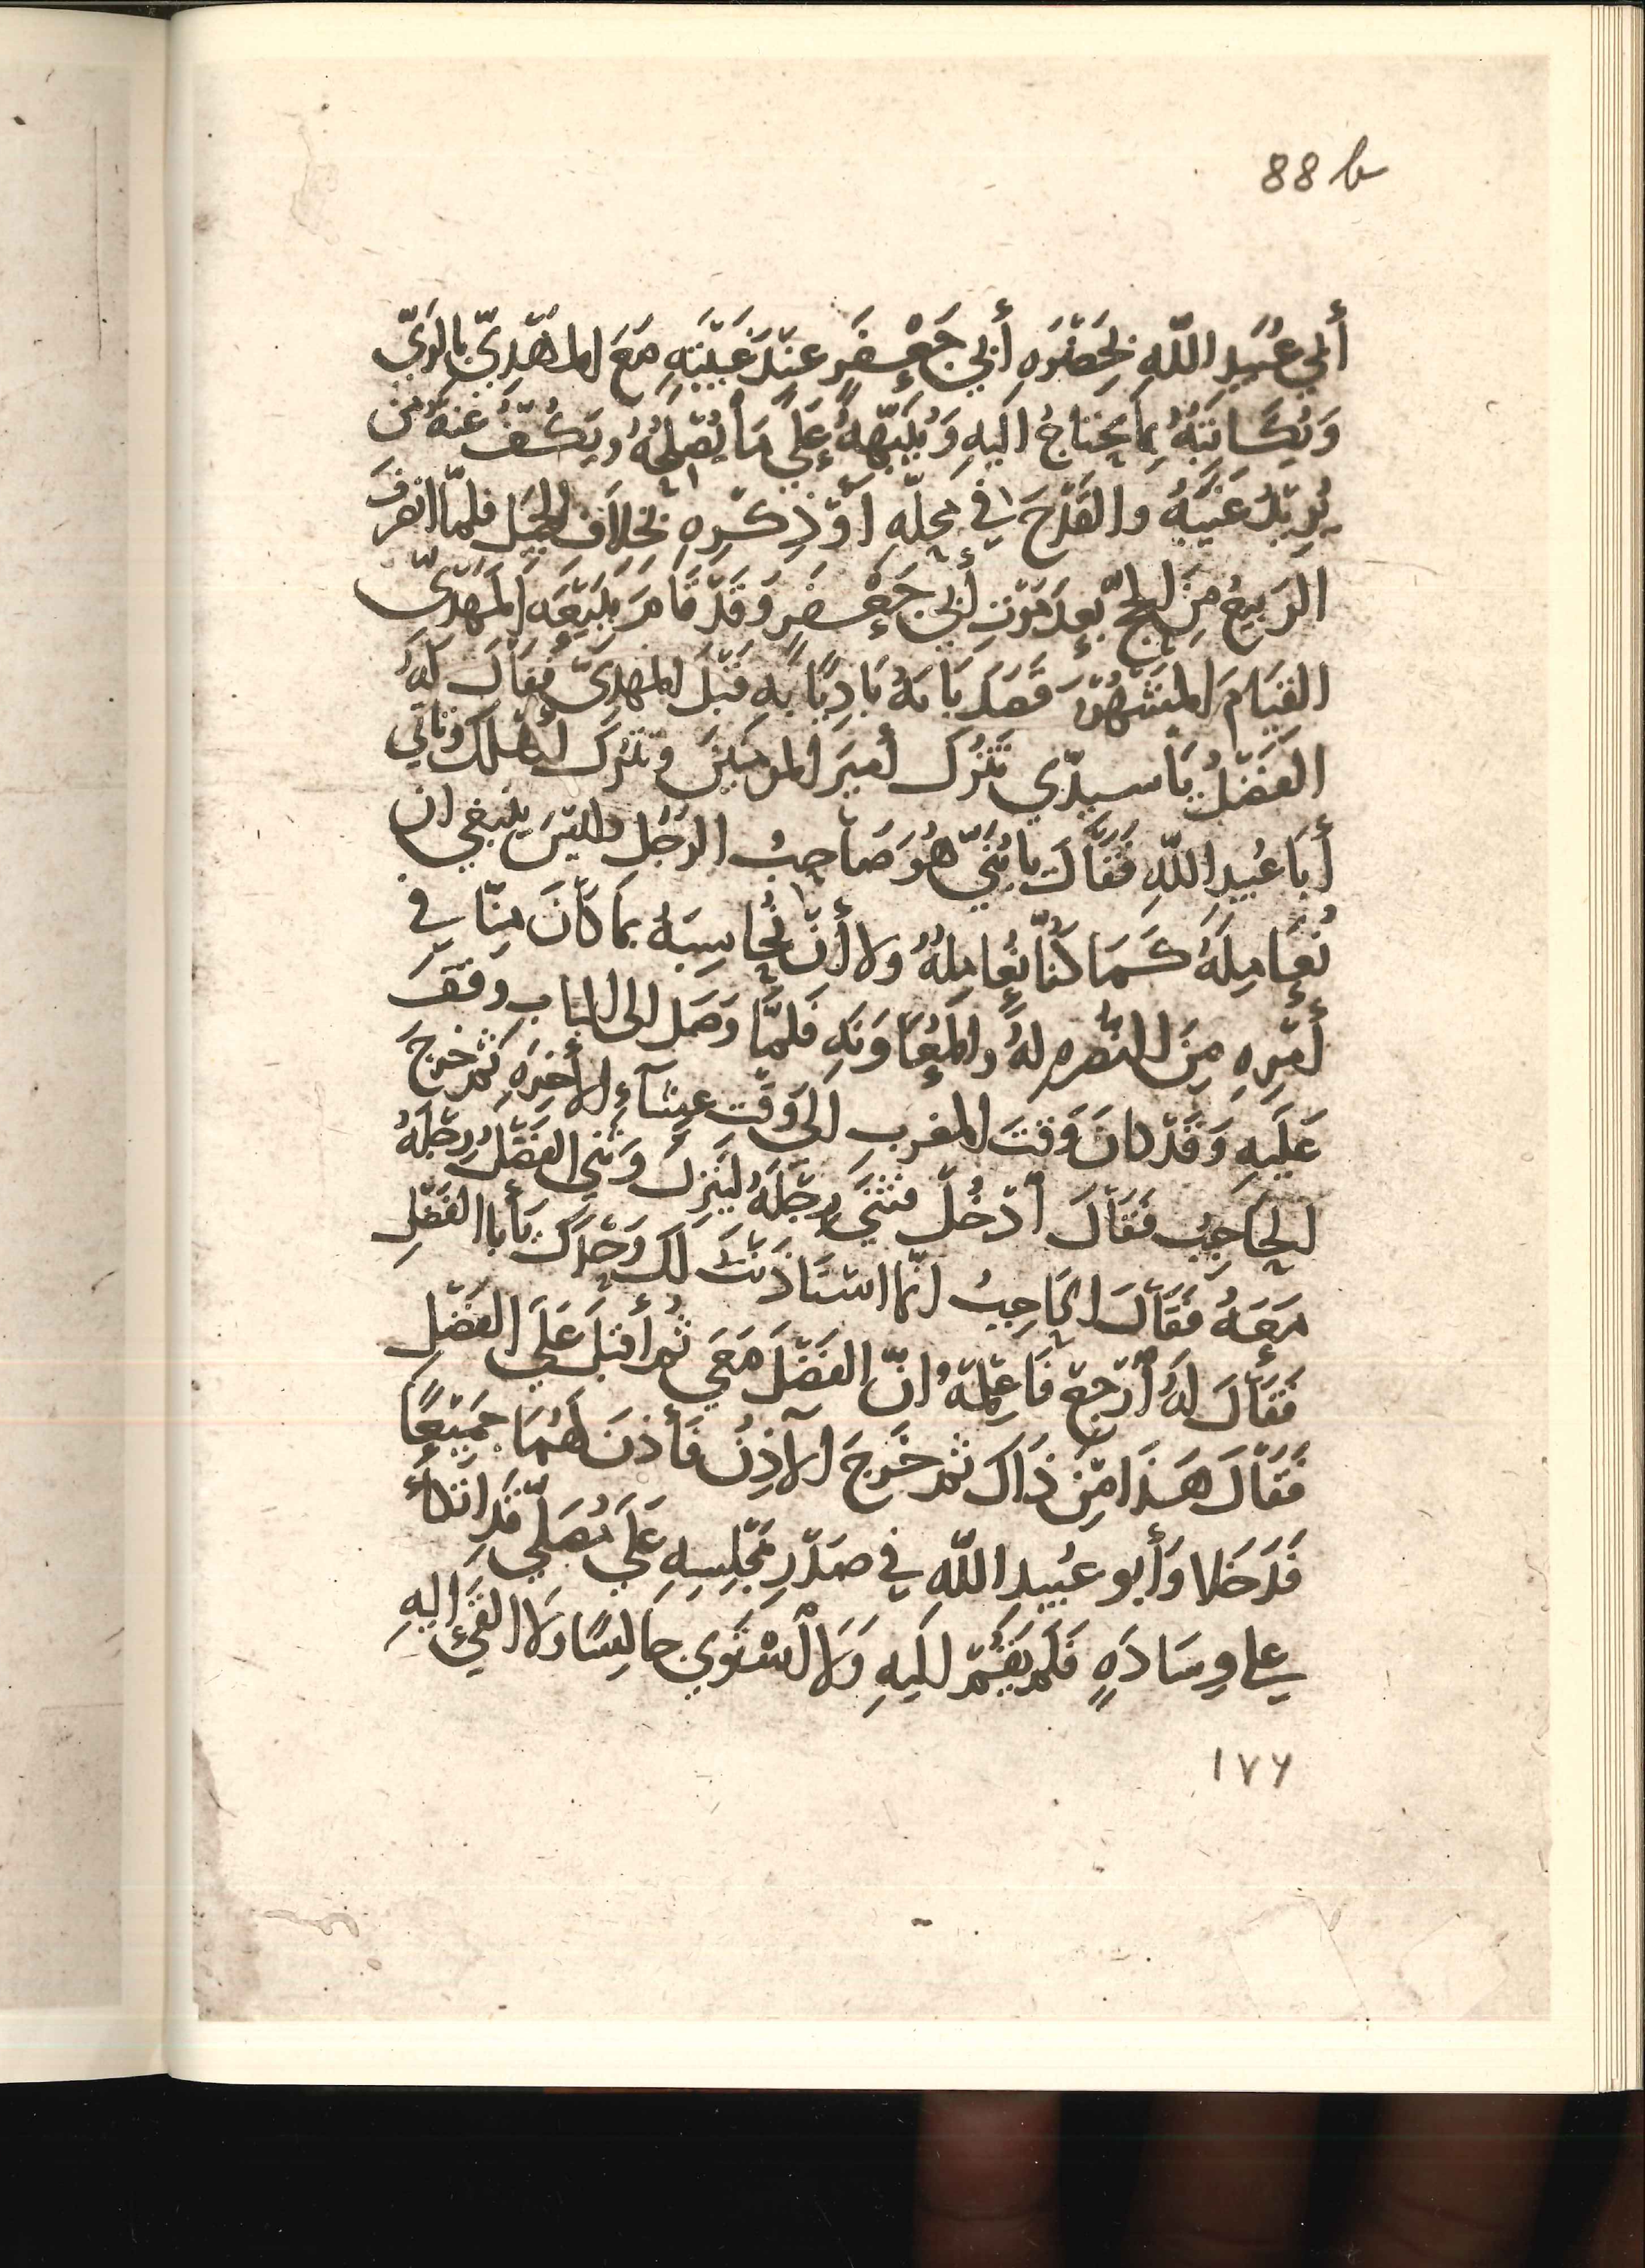 88 b
أَبي عُبَيدِ اللّهِ بِحَضْرَهِ أَبي جَعْفَرٍ عِندَ غَيْبَتِهِ مَعَ المَهْدِيّ بالرَيّ
وَيُكَاتِبُهُ بِمَا يَحتاجُ اليهِ وَيُنَبِّهُهُ عَلَى مَا يُصْلِحُهُ ويَكُفُّ عَنهُ مَن
يُرِيدُ عَيْبَهُ والقَدْحَ في مَحلِّهِ أَوْ ذِكْرِهِ بخلاَف الجَميل فلمّا انصرَفَ
الرَبيعُ مِنَ الحجّ بَعدَ مَوْتِ أَبي جَعْفَرٍ وَقَدْ قَامَ بِبَيْعَهِ المَهْدِىّ
القِيَامَ المَشهُورَ قَصَدَ بَابَهُ بَادِيًا بِهِ قَبْلَ المَهدِىّ فَقَالَ لَهُ
الفَضْلُ يَا سيدّي تَتْرُك أَميرَ المومنينَ وتَتْرُكَ أَهلَكَ وتأتي
أَبَا عُبَيدِ اللّهِ فَقَالَ يا بُنَيّ هُوَ صَاحِبُ الرَجُلِ وليْسَ ينبغي ان
نُعَامِلَهُ كَمَا كُنّا نُعَامِلُهُ ولا أَنْ نُحَاسِبَهُ بمَا كَانَ مِنّا في
أَمْرِهِ مِنَ النُصْرهِ لهُ والمُعَاوَنَهِ فَلَمّا وَصَل الى الباب وقفَ
عَلَيهِ وَقَدْ كانَ وَقتَ المغربِ الى وَقْت عِشآءِ الأخِرَهِ ثم خرجَ
الحَاجِبُ فقَالَ اُدْخُلْ فثَنَى رِجْلَهُ لِيَنزِلَ وَثَنى الفَضْلُ رِجْلَهُ
مَعَهُ فَقَالَ الحَاجِبُ انّما استَاذَنْتُ لَكَ وَحْدَكَ يَأبا الفَضْلِ
فَقَالَ لَهُ اَرْجِعْ فَاعْلِمْهُ انّ الفَضْلَ مَعَي ثم أَقبلَ عَلَى الفَضْلِ
فَقَالَ هَذا مِنْ ذَاكَ ثم خَرجَ الآذِنُ فَأَذنَ لَهُمَا جَميْعًا
فَدَخَلا وَأَبو عُبَيدِ اللّهِ في صَدْرِ مَجْلِسِهِ عَلَى مُصَلّى قَد اتكأَ
على وِسَادَهٍ فَلَم يَقُمْ اليهِ وَلا اسْتَوي جَالِسًا وَلا القىَ اليهِ
١٧٦